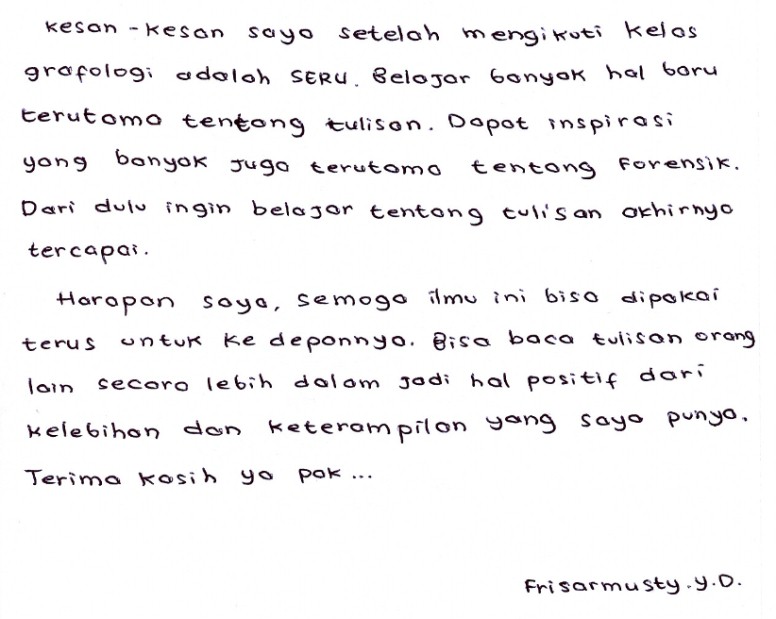 Kesan - kesan saya setelah mengikuti kelas
grafologi adalah SERU. Belajar banyak hal baru
terutama tentang tulisan. Dapat inspirasi
yang banyak juga terutama tentang Forensik.
Dari dulu ingin belajar tentang tulisan akhirnya
tercapai.
Harapan saya, semoga ilmu ini bisa dipakai
terus untuk ke depannya. Bisa baca tulisan orang
lain secara lebih dalam jadi hal positif dari
kelebihan dan keterampilan yang saya punya.
Terima kasih ya pak...
Frisarmusty.y.D.